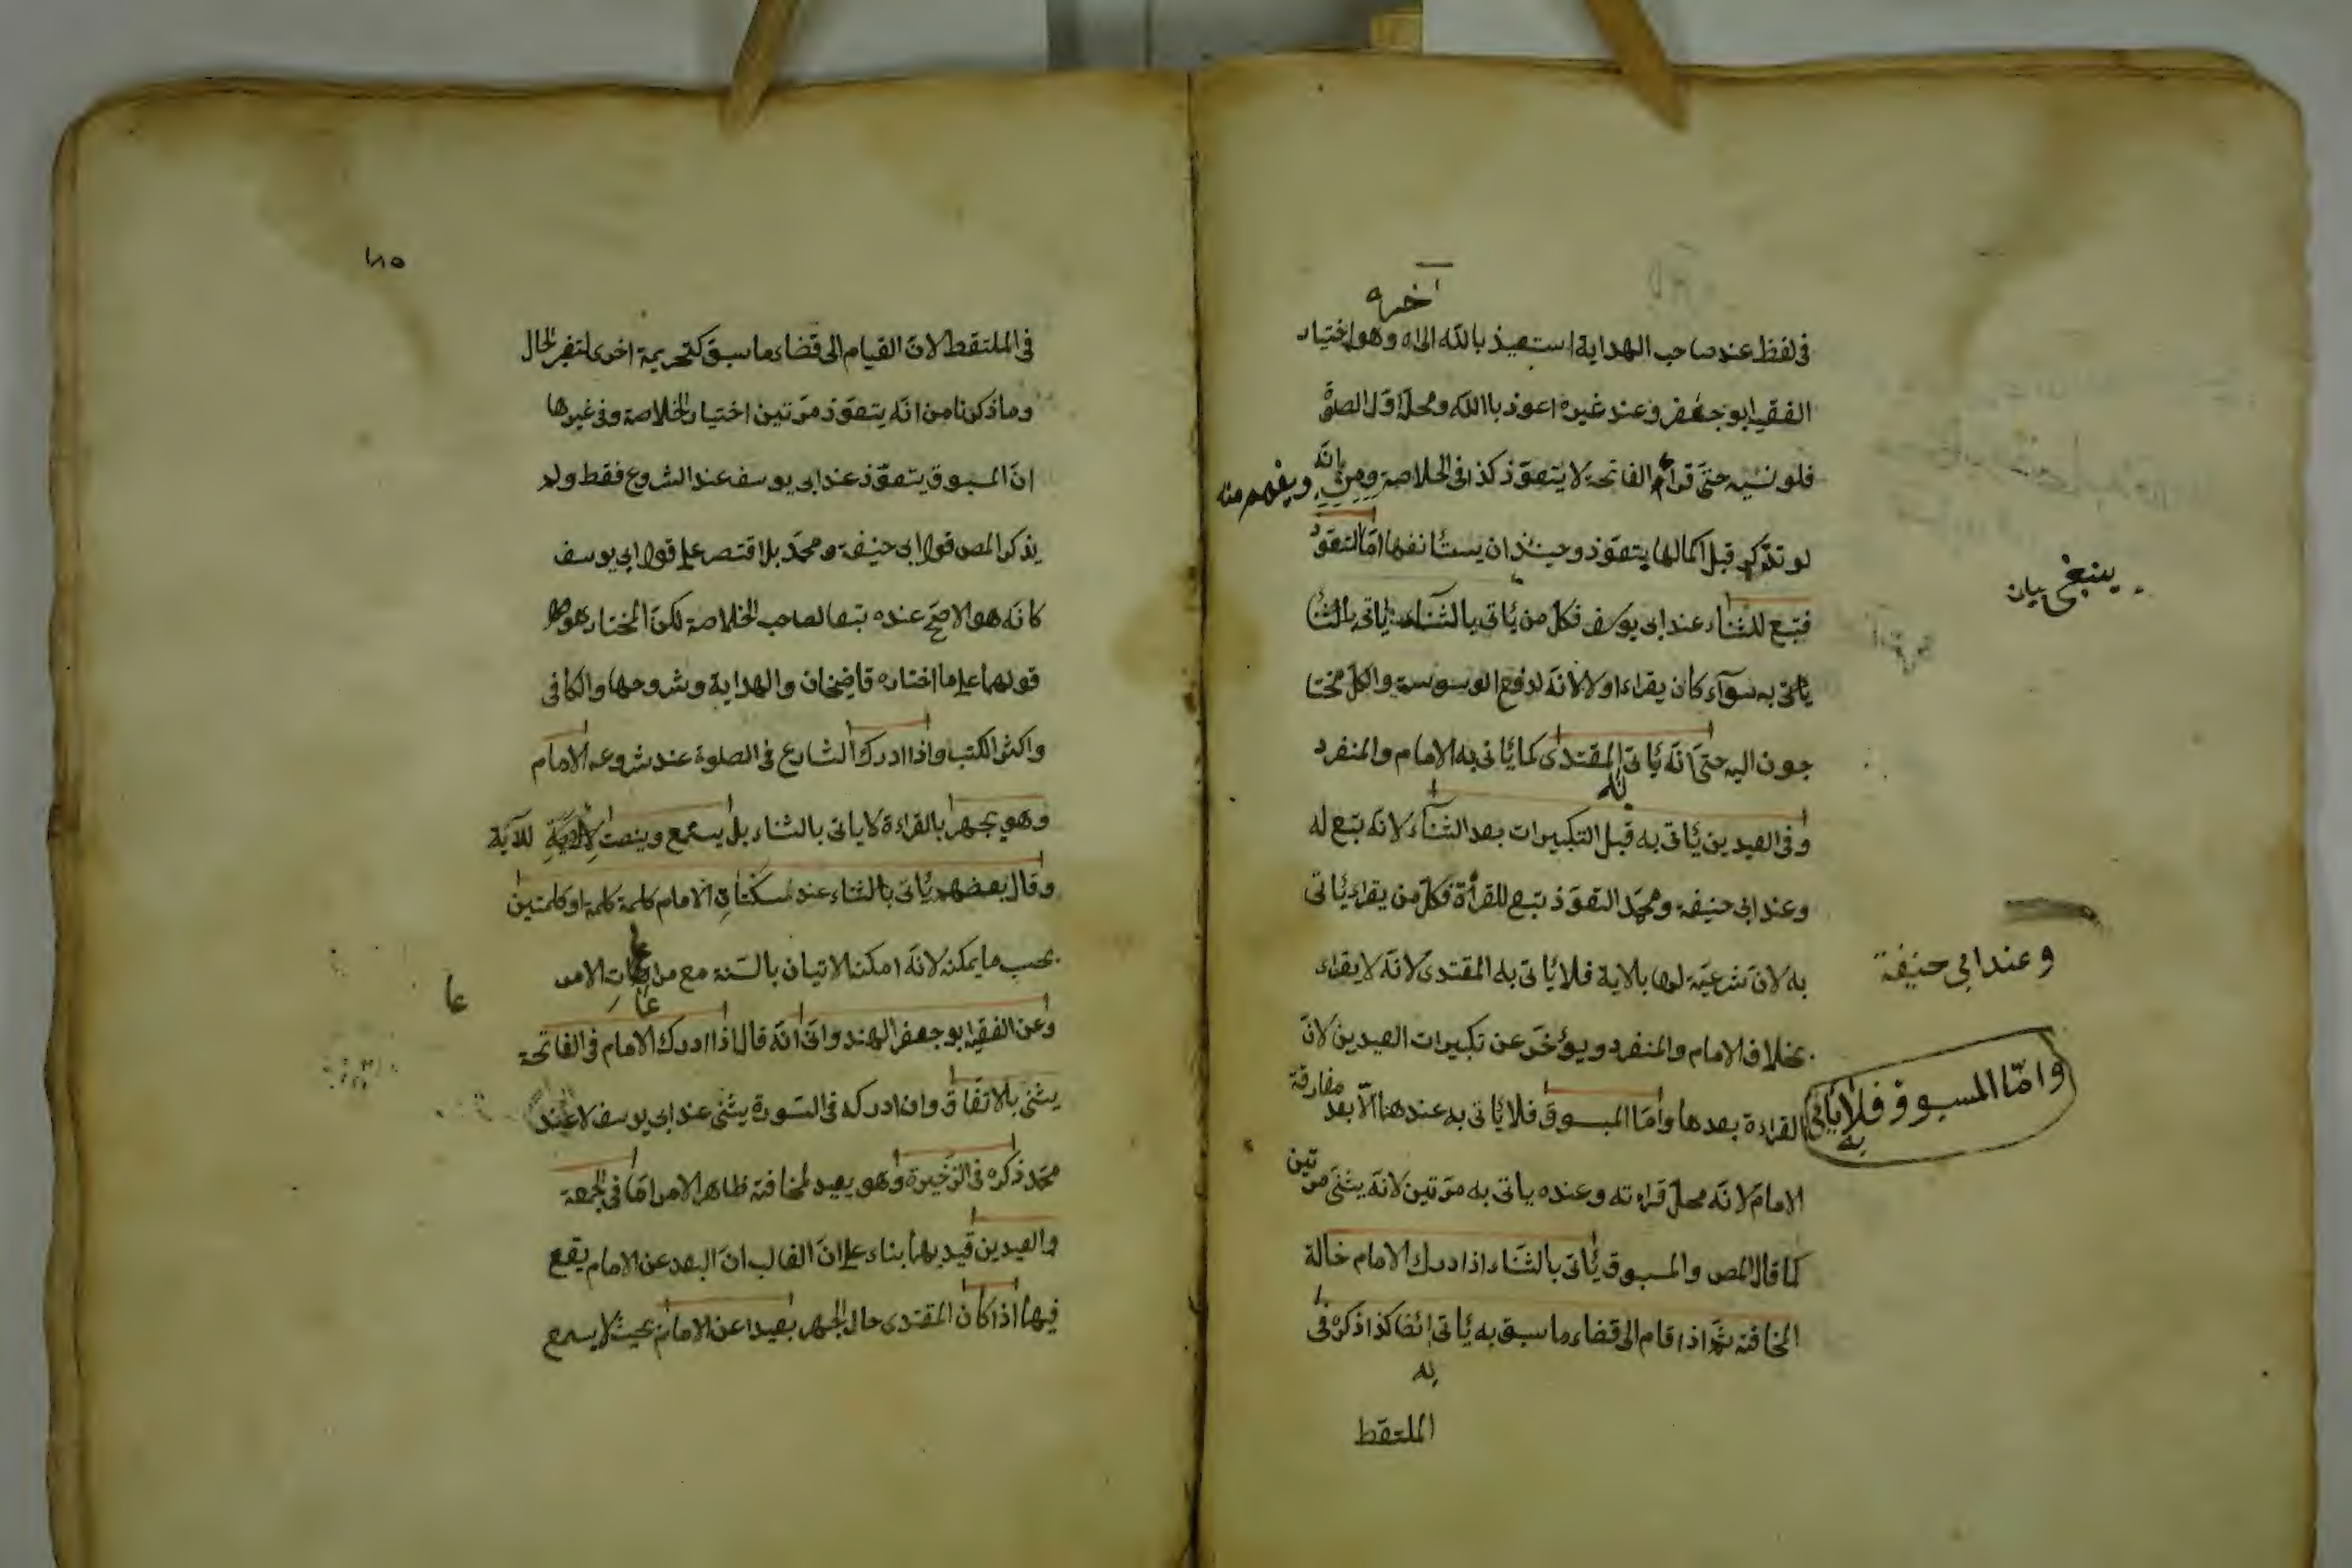 آخره
فى لفظ عند صاحب الهداية استعيذ بالله الى اه وهو اختيار
الفقيه ابو جعفر وعند غيره اعوذ باالله ومحله اول الصلوة
فلو نسيه حتى قرأ الفاتحة لا يتعوذ كذا فى الخلاصة ويفهم منه انه
لو تذكر قبل اكمالها يتعوذ وحينئذ ان يستأنفها اما التعوذ
ينبغى بيان
فتبع للثناء عند ابى يوسف فكل من يأتى بالثناء يأتى بالثنا
يأتى به سوآء كان يقراء اولا لانه لدفع الوسوسة والكل محتا
جون اليه حتى انه يأتى المقتدى كما يأتى به الامام والمنفرد
وفى العيدين يأتى به قبل التكبيرات بعد الثنآء لانه تبع له
وعند ابى حنيفة ومحمد التعوذ تبع للقرأة فكل من يقراء يأتى
وعند ابى حنيفة
به لان شرعيته لها بالاية فلا يأتى به المقتدى لانه لا يقراء
بخلاف الامام والمنفرد ويؤخر عن تكبيرات العيدين لان
واما المسبوق فلا يأتى به
القراءة بعدها واما المسبوق فلا يأتى به عندهنا الا بعد مفارقة
الامام لانه محل قراءته وعنده ياتى به مرتين لانه يثنى مرتين
كما قال المص والمسبوق يأتى بالثناء اذا ادرك الامام حالة
المخافتة ثم اذا قام الى قضاء ما سبق به يأتى به ايضا كذا ذكره فى
الملتقط
١٨٥
فى الملتقط لان القيام الى قضاء ما سبق كتحريمة اخرى لتغير الحال
وما ذكرنا من انه يتعوذ مرتين اختيار الخلاصة وفى غيرها
ان المسبوق يتعوذ عند ابى يوسف عند الشروع فقط ولم
يذكر المص قول ابى حنيفة ومحمد بل اقتصر على قول ابى يوسف
كانه هو الاصح عنده تبعا لصاحب الخلاصة لكن المختار هو
قولهما على ما اختاره قاضيخان والهداية وشروحها والكافى
واكثر الكتب واذا ادرك الشارع فى الصلوة عند شروعه الامام
وهو يجهر بالقراءة لا ياتى بالثناء بل يستمع وينصت للآية
وقال بعضهم يأتى بالثناء عند سكتات الامام كلمة كلمة او كلمتين
بحسب ما يمكنه لانه امكنه الاتيان بالسنة مع مراعات الامر
عا
وعن الفقيه ابو جعفر الهندوانى انه قال اذا ادرك الامام فى الفاتحة
يثنى بالاتفاق وان ادركه فى السورة يثنى عند ابى يوسف لا عند
محمد ذكره فى الذخيرة وهو بعيد لمخافته ظاهر الامر اما فى الجمعة
والعيدين قيد بهما بناء على ان الغالب ان البعد عن الامام يقع
فيها اذا كان المقتدى حال الجهر بعيدا عن الامام بحيث لا يسمع